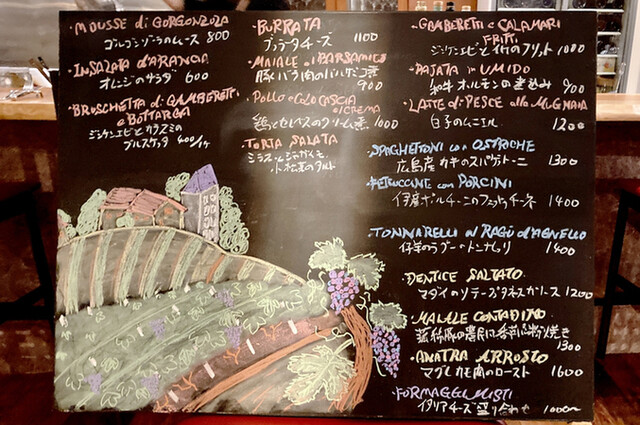 ・MOUSSE di GORGONZOLA
ゴルゴンゾーラのムース 800
・INSALATA d'ARANCIA
オレンジのサラダ 600
・BRUSCHETTA di GAMBERETTI
e BOTTARGA
ジンケンエビとカラスミの
ブルスケッタ 400/1ヶ
・BURRATA
ブッラータチーズ 1100
・MAIALE al BARSAMICO
豚バラ肉のバルサミコ煮
900
・POLLO e COLOCASCIA
CREMA
鶏とセレベスのクリーム煮 1000
・TORTA SALATA
小松菜のタルト
・GAMBERETTI e CALAMARI
FRITTI
ジンケンエビとイカのフリット 1000
・PAJATA in UMIDO
和牛ホルモンの煮込み 900
・LATTE di PESCE alla MUGNAIA
白子のムニエル
1200
・SPAGHETTONI con OSTRICHE
広島産カキのスパゲトーニ 1300
・FETTUCCINE con PORCINI
伊産ポルチーニのフェットチーネ 1400
TONNARELLI al RAGÙ d'AGNELLO
仔羊のラグーのトンナレッリ 1400
DENTICE SALTATO
マダイのソテープッタネスカソース 1200
・MAIALE CONTADINO
豚の農民に香草パン粉焼き
1300
・ANATRA ARROSTO
マグレカモ肉のロースト 1600
・FORMAGGI MISTI
イタリアチーズ盛り合わせ 1000〜